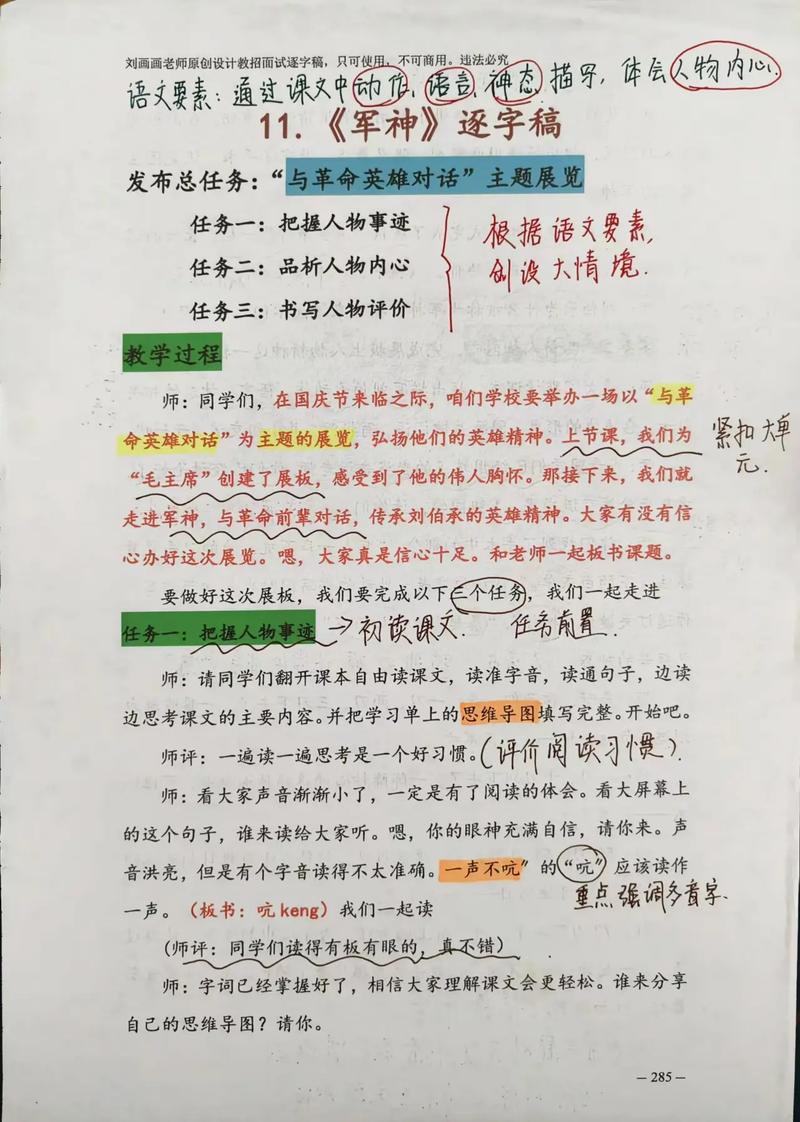 刘画画老师原创设计教招面试逐字稿，只可使用，不可商用。违法必究
语文要素：通过课文中动作、语言、神态描写，体会人物内心。
11.《军神》逐字稿
发布总任务：“与革命英雄对话”主题展览
任务一：把握人物事迹
任务二：品析人物内心
任务三：书写人物评价
根据语文要素，
创设大情境.
教学过程
师：同学们，在国庆节来临之际，咱们学校要举办一场以“与革
命英雄对话”为主题的展览，弘扬他们的英雄精神。上节课，我们为
“毛主席”创建了展板，感受到了他的伟人胸怀。那接下来，我们就
走进军神，与革命前辈对话，传承刘伯承的英雄精神。大家有没有信
心办好这次展览。嗯，大家真是信心十足。和老师一起板书课题。
紧扣大单
元.
要做好这次展板，我们要完成以下三个任务，我们一起走进
任务一：把握人物事迹 →初读课文. 任务前置.
师：请同学们翻开课本自由读课文，读准字音，读通句子，边读
边思考课文的主要内容。并把学习单上的思维导图填写完整。开始吧。
师评：一遍读一遍思考是一个好习惯。(评价阅读习惯).
师：看大家声音渐渐小了，一定是有了阅读的体会。看大屏幕上
的这个句子，谁来读给大家听。嗯，你的眼神充满自信，请你来。声
音洪亮，但是有个字音读得不太准确。一声不吭”的“吭”应该读作
一声。（板书：吭 keng）我们一起读
重点强调多音字.
(师评：同学们读得有板有眼的，真不错)
师：字词已经掌握好了，相信大家理解课文会更轻松。谁来分享
自己的思维导图？请你。
— 285 —